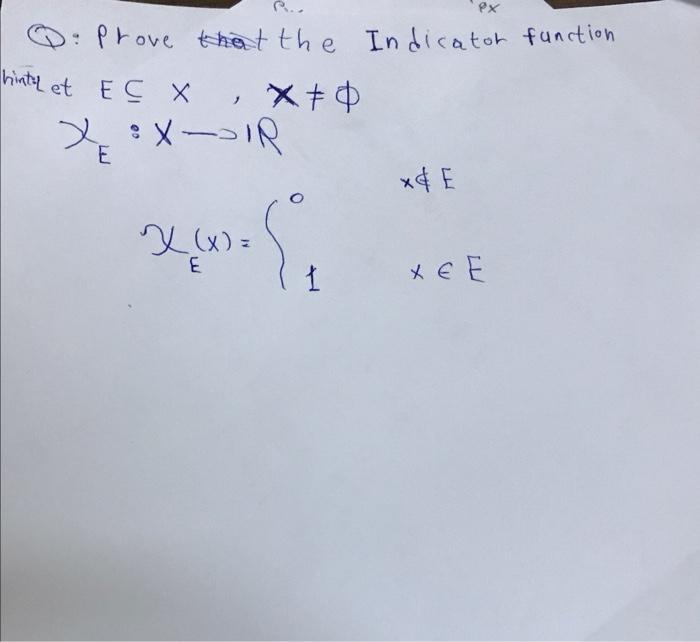 Q: Prove the Indicator function
hint: Let E ⊆ X , X ≠ Φ
χ_E : X → IR
χ_E(x) = { 0 x ∉ E
1 x ∈ E